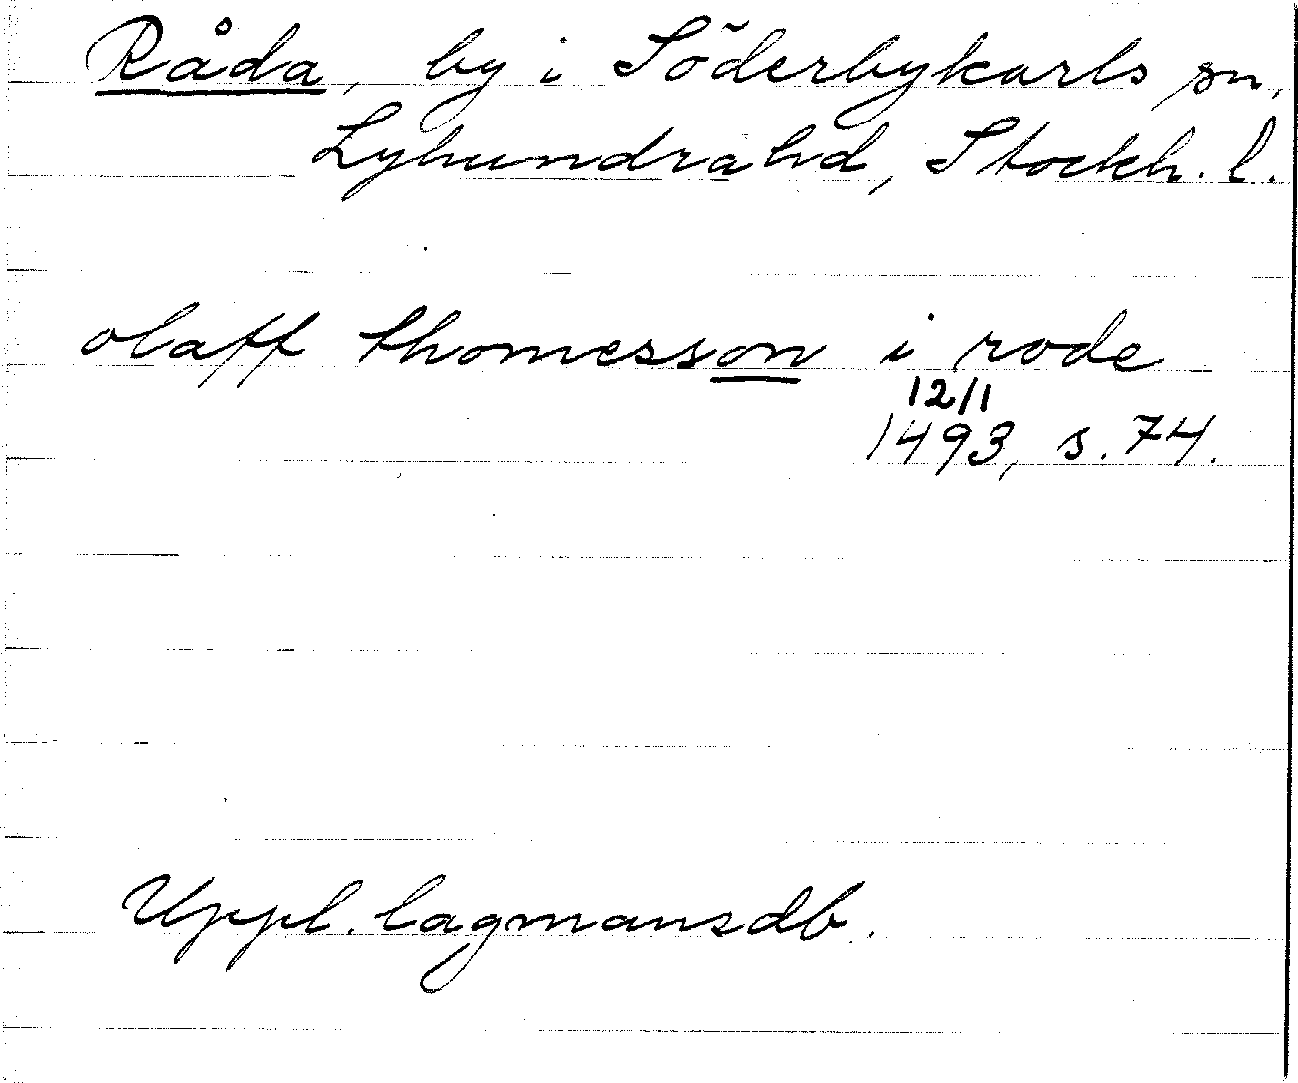 Råda, by i Söderbykarls sn,
Lyhundra hd, Stockh. l.
olaff thomesson i rode
12/1
1493, s. 74.
Uppl. lagmansdb.